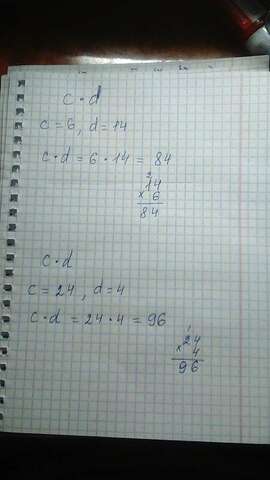 c · d
c = 6, d = 14
c · d = 6 · 14 = 84
2
14
× 6
84
c · d
c = 24, d = 4
c · d = 24 · 4 = 96
1
24
× 4
96